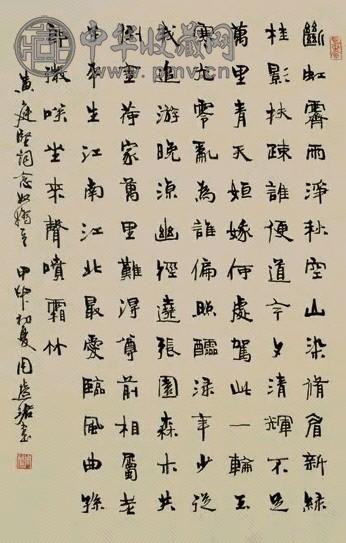 中华收藏网
www.pmv.cn
斷虹霽雨淨秋空山染脩眉新綠
桂影扶疎誰便道今夕清輝不足
萬里青天姮娥何處駕此一輪玉
寒光零亂為誰偏照醽淥年少從
我追游晚涼幽徑遶張園森木共
倒金荷家萬里難得尊前相屬老
子平生江南江北最愛臨風曲孫
郎微笑坐來聲噴霜竹
黄庭堅詞念奴嬌 甲申初夏周書